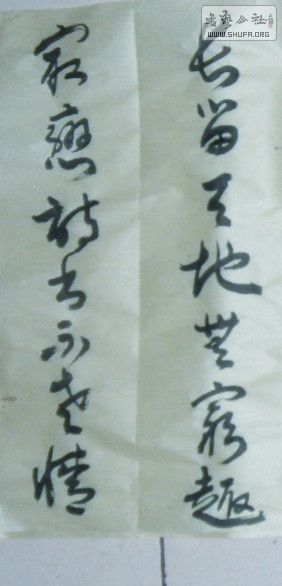 長留天地無窮趣
最戀詩書不老情
書藝公社
WWW.SHUFA.ORG